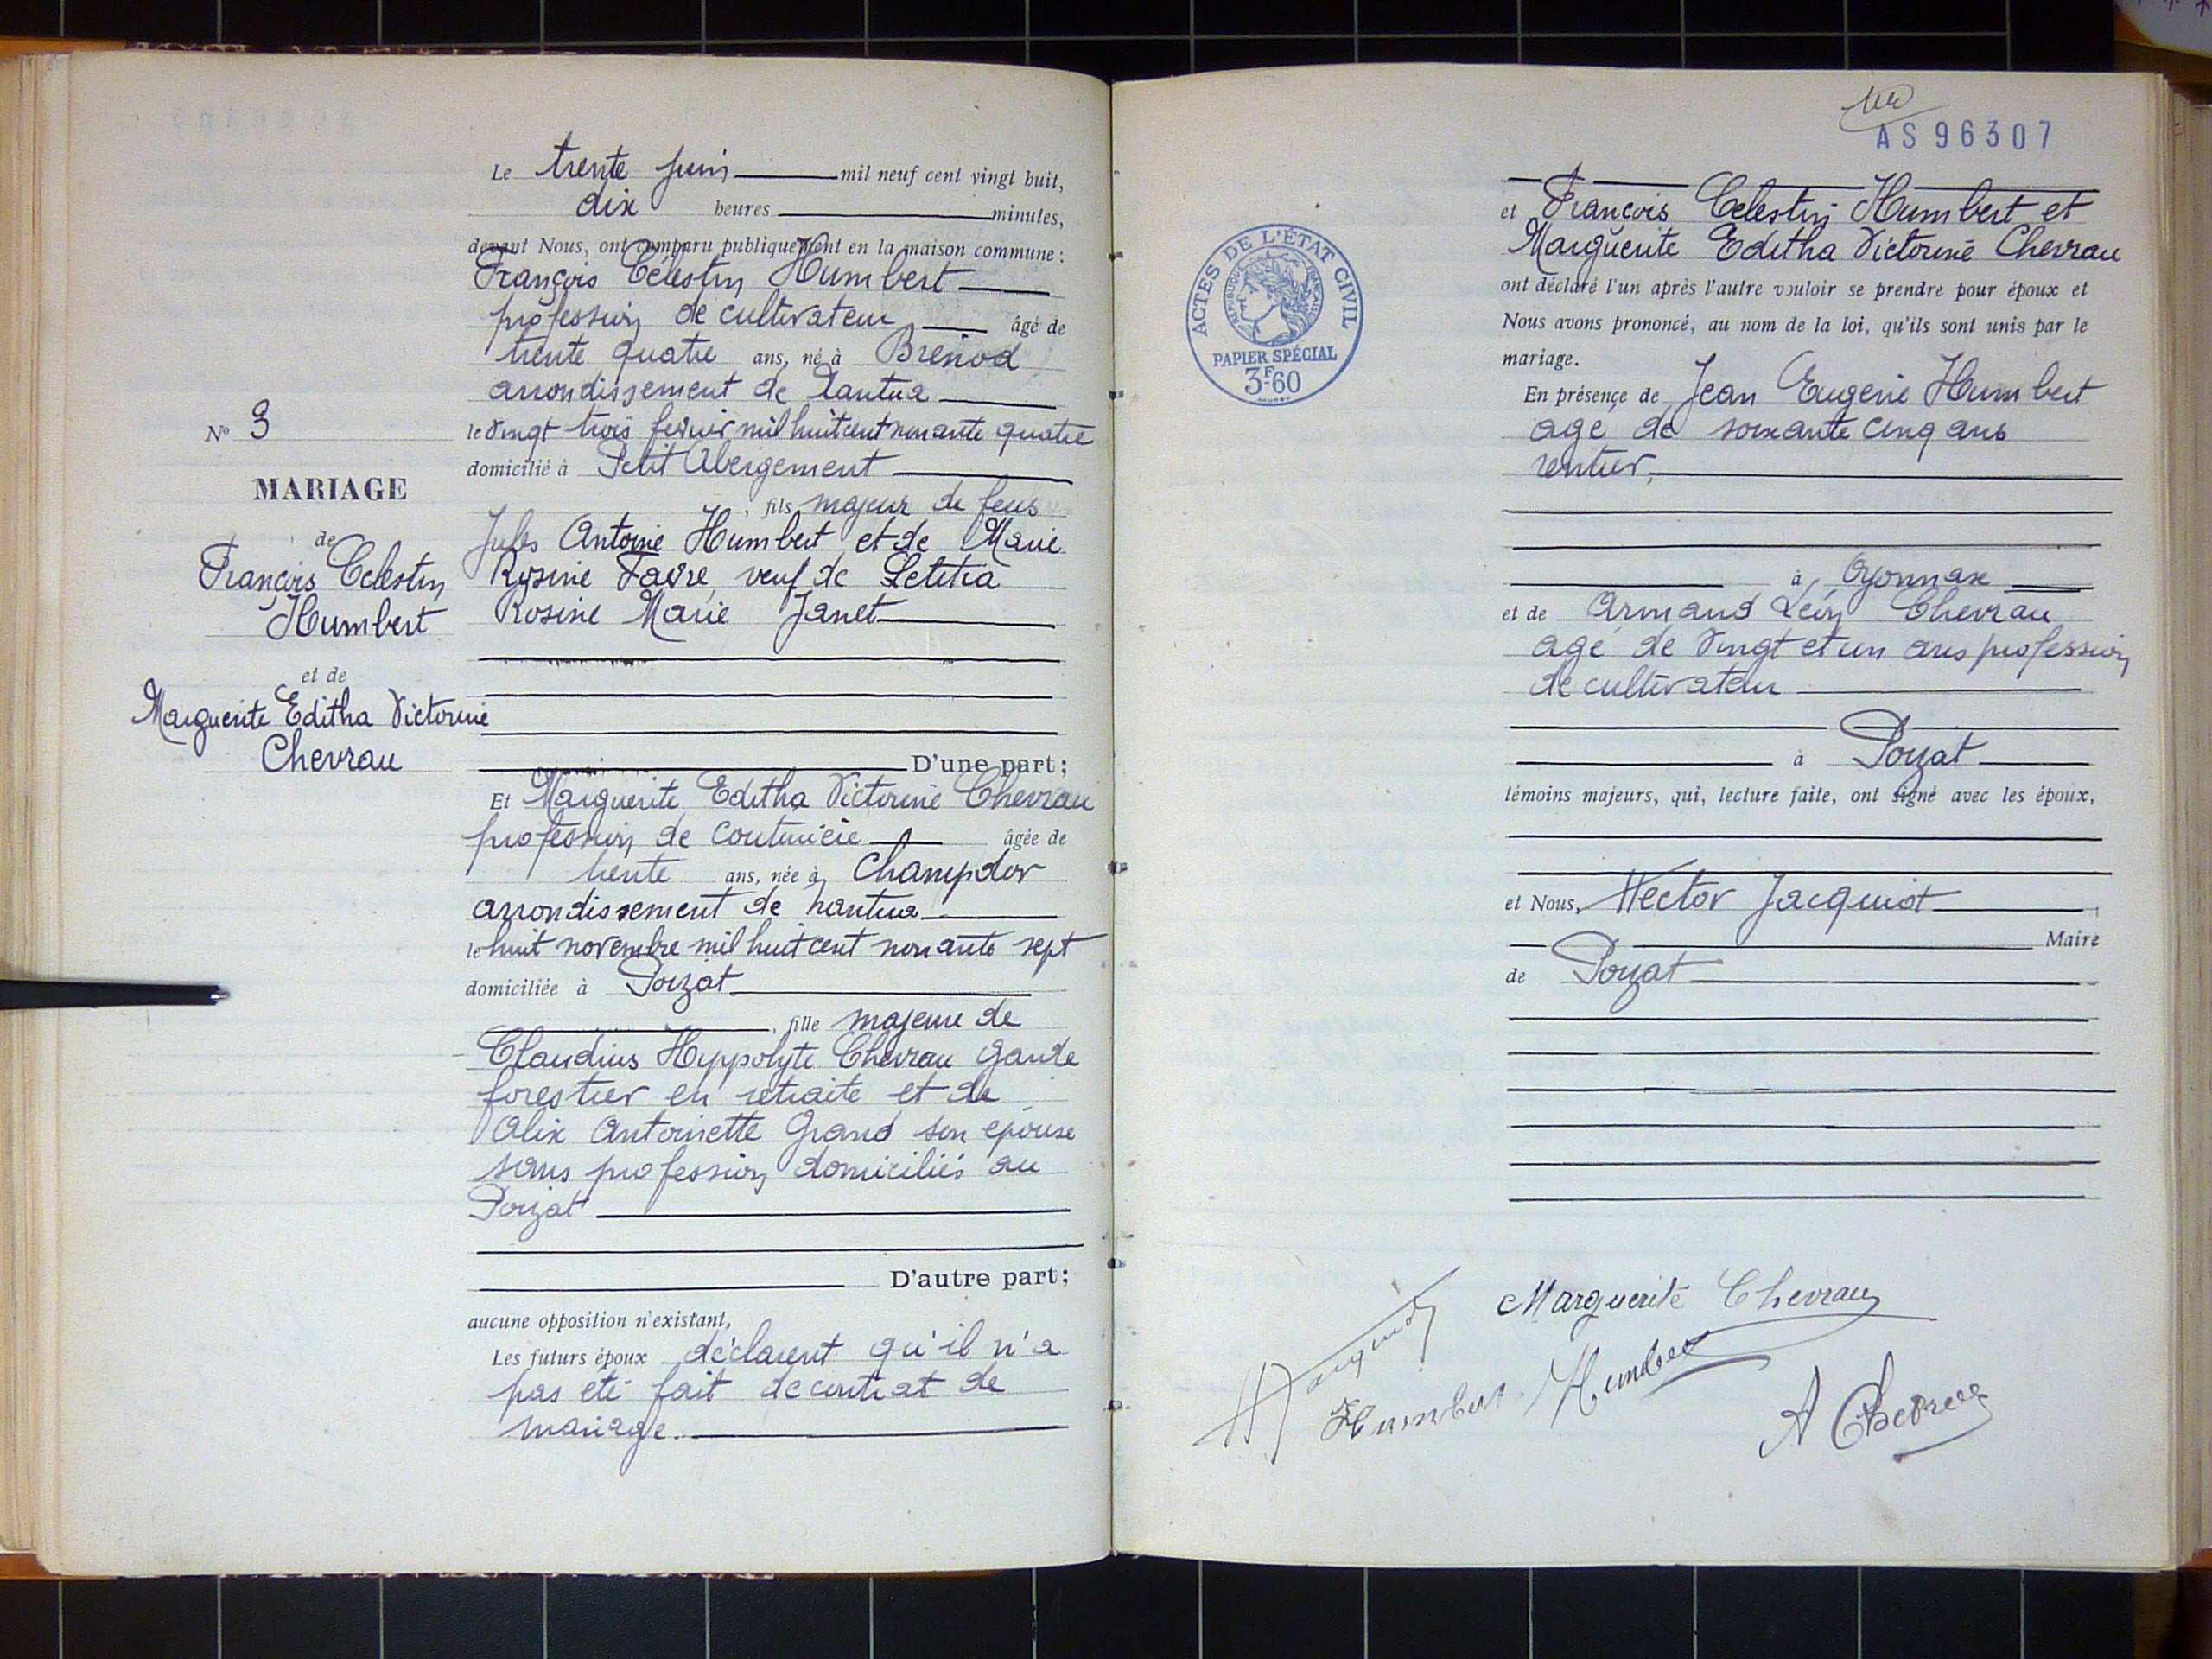 Le trente juin mil neuf cent vingt huit,
dix heures minutes,
devant Nous, ont comparu publiquement en la maison commune :
François Célestin Humbert
profession de cultivateur âgé de
trente quatre ans, né à Brénod
arrondissement de Nantua
le vingt trois fevrier mil huit cent nonante quatre
domicilié à Petit Abergement
, fils majeur de feus
Jules Antoine Humbert et de Marie
Rosine Favre, veuf de Letitia
Rosine Marie Janet
D'une part ;
Et Marguerite Editha Victorine Chevrau
profession de couturière âgée de
trente ans, née à Champdor
arrondissement de nantua
le huit novembre mil huit cent nonante sept
domiciliée à Poizat
, fille majeure de
Claudius Hyppolyte Chevrau garde
forestier en retraite et de
Alix Antoinette Grand son epouse
sans profession domiciliés au
Poizat
D'autre part ;
aucune opposition n'existant,
Les futurs époux déclarent qu'il n'a
pas eté fait de contrat de
mariage.
No 3
MARIAGE
de
François Celestin
Humbert
et de
Marguerite Editha Victorine
Chevrau
AS 96307
ACTES DE L'ÉTAT CIVIL
RÉPUBLIQUE FRANÇAISE
PAPIER SPÉCIAL
3F60
et François Celestin Humbert et
Marguerite Editha Victorine Chevrau
ont déclaré l'un après l'autre vouloir se prendre pour époux et
Nous avons prononcé, au nom de la loi, qu'ils sont unis par le
mariage.
En présence de Jean Eugène Humbert
agé de soixante cinq ans
rentier,
à Oyonnax
et de Armand Léon Chevrau
agé de vingt et un ans profession
de cultivateur
à Poizat
témoins majeurs, qui, lecture faite, ont signé avec les époux,
et Nous, Hector Jacquiot
Maire
de Poizat
Marguerite Chevrau
H Jacquiot
Humbert Humbert
A Chevrau